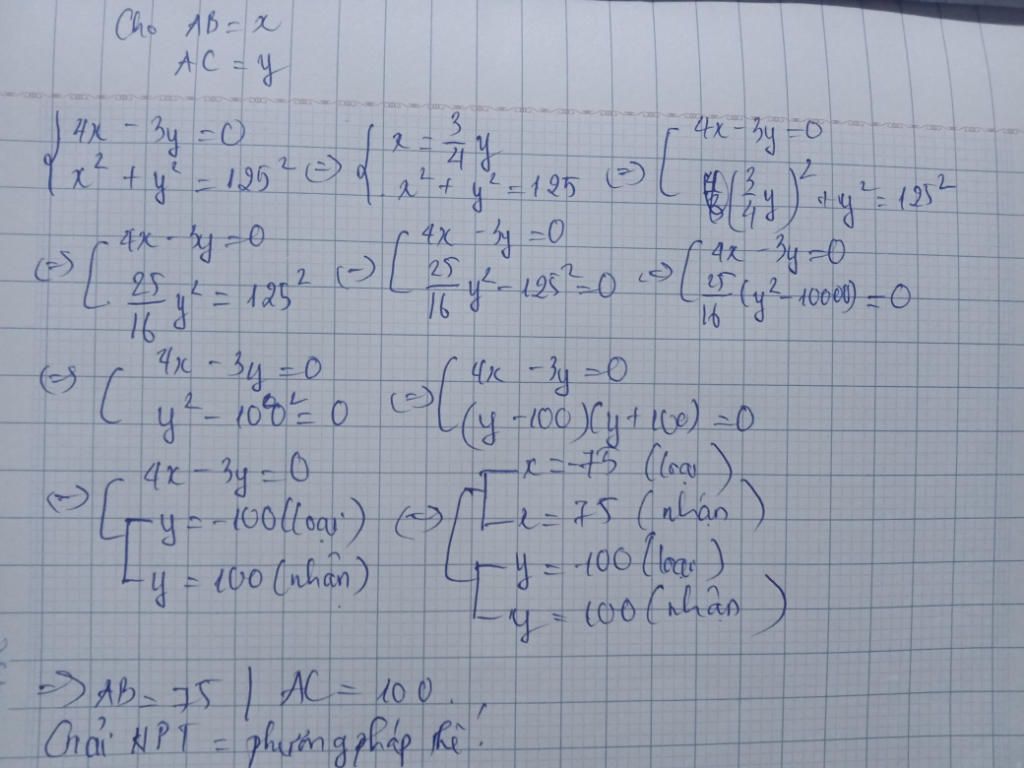 Cho AB = x
AC = y
{ 4x - 3y = 0
x² + y² = 125² (=) { x = 3/4 y
x² + y² = 125 (=) [ 4x - 3y = 0
(3/4 y)² + y² = 125²
(=) [ 4x - 3y = 0
25/16 y² = 125² (=) [ 4x - 3y = 0
25/16 y² - 125² = 0 (=) [ 4x - 3y = 0
25/16 (y² - 10000) = 0
(=) [ 4x - 3y = 0
y² - 100² = 0 (=) [ 4x - 3y = 0
(y - 100)(y + 100) = 0
(=) [ 4x - 3y = 0
[ y = -100 (loại)
y = 100 (nhận) (=) [ [ x = -75 (loại)
x = 75 (nhận)
[ y = -100 (loại)
y = 100 (nhận)
=> AB = 75 | AC = 100.
HPT = phương pháp thế.